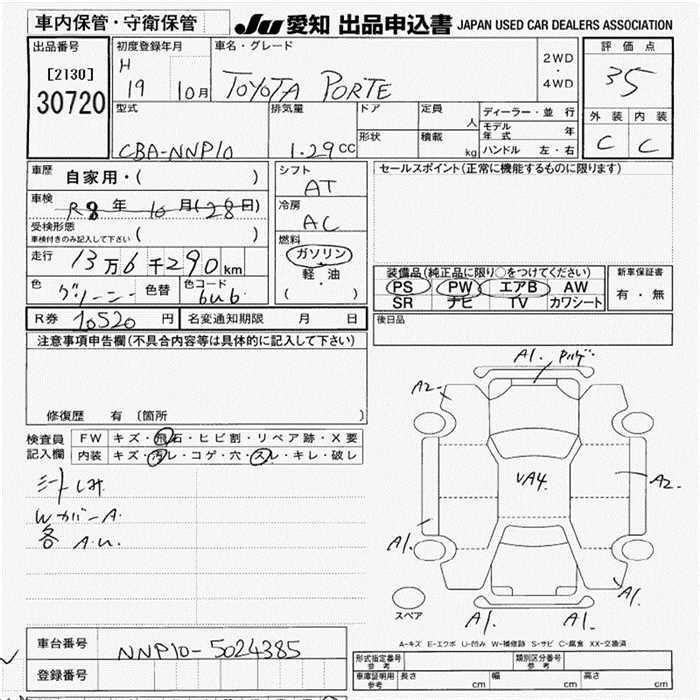 車内保管・守衛保管
JU 愛知 出品申込書 JAPAN USED CAR DEALERS ASSOCIATION
出品番号
[2130]
30720
初度登録年月
H
19 10月
車名・グレード
TOYOTA PORTE
2WD
・
4WD
評価点
35
外装 内装
C C
型式
CBA-NNP10
排気量
1.29cc
ドア
形状
定員
人
積載
kg
ディーラー・並行
モデル年式 年
ハンドル 左・右
車歴 自家用・( )
車検 R8年 10月(28日)
受検形態
車検付きのみ記入して下さい ( )
走行 13万6千290km
色 グリーン 色替 色コード
6U6
シフト
AT
冷房
AC
燃料
ガソリン
軽・油
( )
セールスポイント(正常に機能するものに限ります)
装備品(純正品に限り○をつけてください)
PS PW エアB AW
SR ナビ TV カワシート
新車保証書
有・無
R券 10520円 名変通知期限 月 日
後日品
注意事項申告欄(不具合内容等は具体的に記入して下さい)
修復歴 有 〔箇所 〕
検査員
記入欄
FW キズ・飛石・ヒビ割・リペア跡・X要
内装 キズ・汚レ・コゲ・穴・スレ・キレ・破レ
シートしみ
WカバーA.
各 A.U.
A1.
A2
VA4.
A2.
A1.
A1.
A1.
A1.
スペア
A-キズ E-エクボ U-凹み W-補修跡 S-サビ C-腐食 XX-交換済
車台番号 NNP10-5024385
登録番号
形式指定番号
参考
類別区分番号
参考
車庫証明用
参考
長さ cm 幅 cm 高さ cm